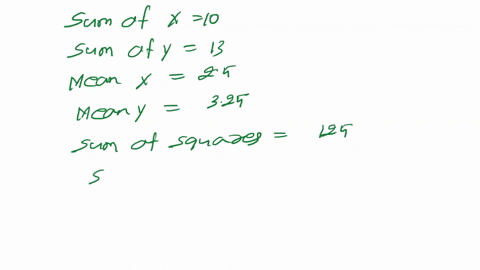 Sum of x = 10
Sum of y = 13
Mean x = 2.5
Mean y = 3.25
Sum of squares = 125
S